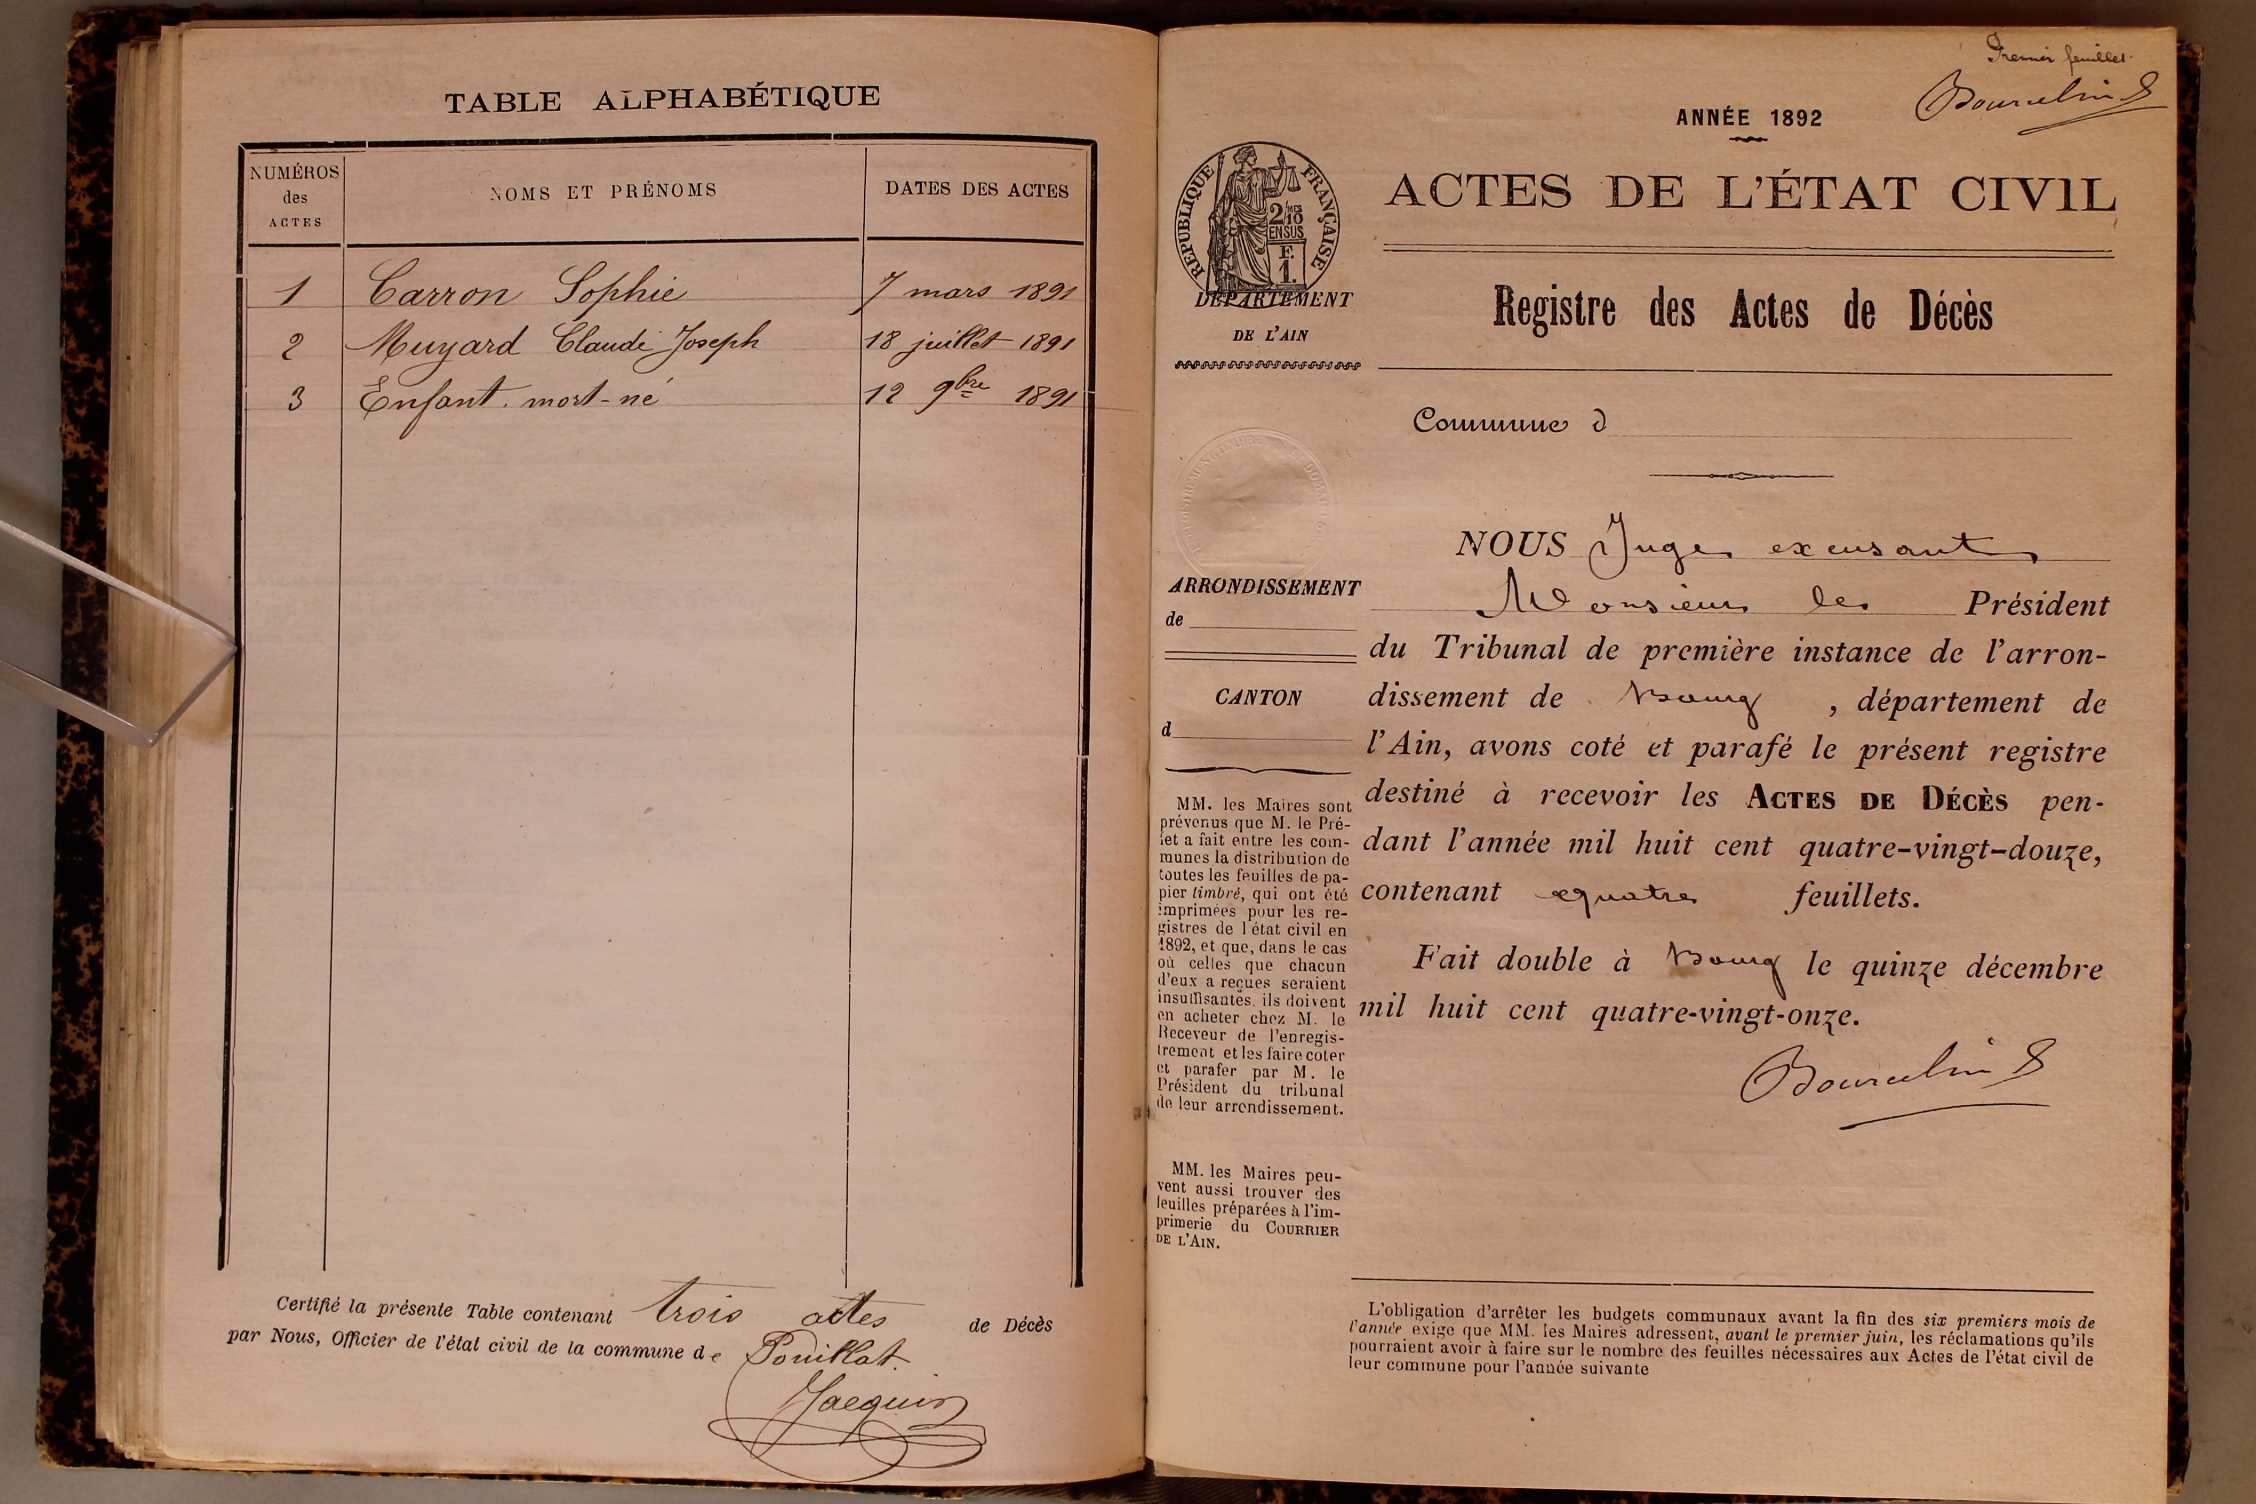 TABLE ALPHABÉTIQUE
NUMÉROS
des
ACTES
NOMS ET PRÉNOMS
DATES DES ACTES
1 Carron Sophie 7 mars 1891
2 Muyard Claude Joseph 18 juillet 1891
3 Enfant mort-né 12 9bre 1891
Certifié la présente Table contenant trois actes de Décès
par Nous, Officier de l'état civil de la commune de Pouillat.
Jacquin
Premier feuillet
ANNÉE 1892
RÉPUBLIQUE FRANÇAISE
2/10MES
EN SUS
F.
1.
ACTES DE L'ÉTAT CIVIL
DÉPARTEMENT
DE L'AIN
Registre des Actes de Décès
Commune d
ARRONDISSEMENT
de
CANTON
d
MM. les Maires sont
prévenus que M. le Pré-
fet a fait entre les com-
munes la distribution de
toutes les feuilles de pa-
pier timbré, qui ont été
imprimées pour les re-
gistres de l'état civil en
1892, et que, dans le cas
où celles que chacun
d'eux a reçues seraient
insuffisantes, ils doivent
en acheter chez M. le
Receveur de l'enregis-
trement et les faire coter
et parafer par M. le
Président du tribunal
de leur arrondissement.
MM. les Maires peu-
vent aussi trouver des
feuilles préparées à l'im-
primerie du COURRIER
DE L'AIN.
NOUS Juge excusant
Monsieur le Président
du Tribunal de première instance de l'arron-
dissement de Bourg, département de
l'Ain, avons coté et parafé le présent registre
destiné à recevoir les ACTES DE DÉCÈS pen-
dant l'année mil huit cent quatre-vingt-douze,
contenant quatre feuillets.
Fait double à Bourg le quinze décembre
mil huit cent quatre-vingt-onze.
L'obligation d'arrêter les budgets communaux avant la fin des six premiers mois de
l'année exige que MM. les Maires adressent, avant le premier juin, les réclamations qu'ils
pourraient avoir à faire sur le nombre des feuilles nécessaires aux Actes de l'état civil de
leur commune pour l'année suivante